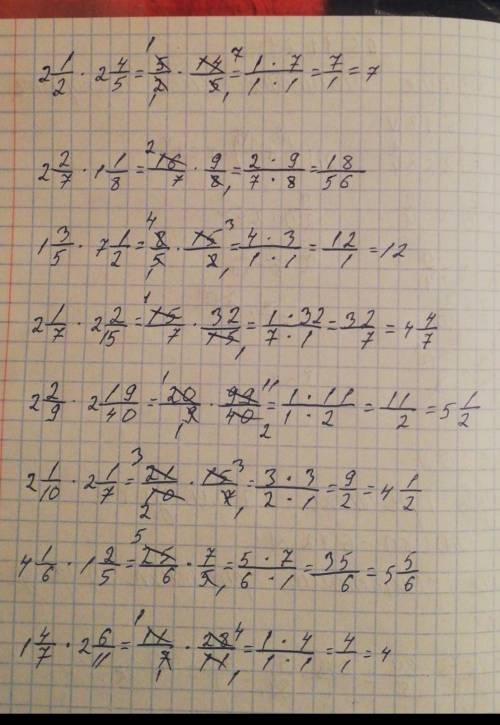 2 1/2 · 2 4/5 = 5/2 · 14/5 = 1 · 7 / 1 · 1 = 7/1 = 7
2 2/7 · 1 1/8 = 16/7 · 9/8 = 2 · 9 / 7 · 8 = 18/56
1 3/5 · 7 1/2 = 8/5 · 15/2 = 4 · 3 / 1 · 1 = 12/1 = 12
2 1/7 · 2 2/15 = 15/7 · 32/15 = 1 · 32 / 7 · 1 = 32/7 = 4 4/7
2 2/9 · 2 19/40 = 20/9 · 99/40 = 1 · 11 / 1 · 2 = 11/2 = 5 1/2
2 1/10 · 2 1/7 = 21/10 · 15/7 = 3 · 3 / 2 · 1 = 9/2 = 4 1/2
4 1/6 · 1 2/5 = 25/6 · 7/5 = 5 · 7 / 6 · 1 = 35/6 = 5 5/6
1 4/7 · 2 6/11 = 11/7 · 28/11 = 1 · 4 / 1 · 1 = 4/1 = 4